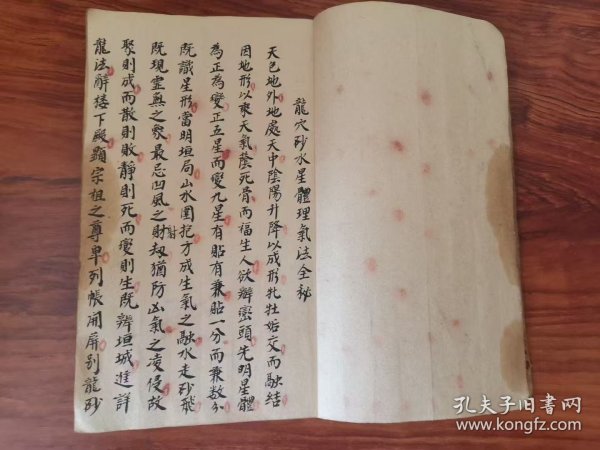 龍穴砂水星體理氣法全秘
天包地外地處天中陰陽升降以成形牝牡媾交而融結
因地形以乘天氣蔭死骨而福生人欲辦巒頭先明星體
為正為變正五星而變九星有貼有兼貼一分而兼数分
既識星形當明垣局山水圍抱方成生氣之融水走砂飛
既現靈無之象最忌凹風之射劫猶防凶氣之凌侵故
聚則成而散則敗靜則死而變則生既辨垣城進詳
龍法解樓下殿顯宗祖之尊卑列帳開屏别龍砂
孔夫子旧書网
www.kongfz.com